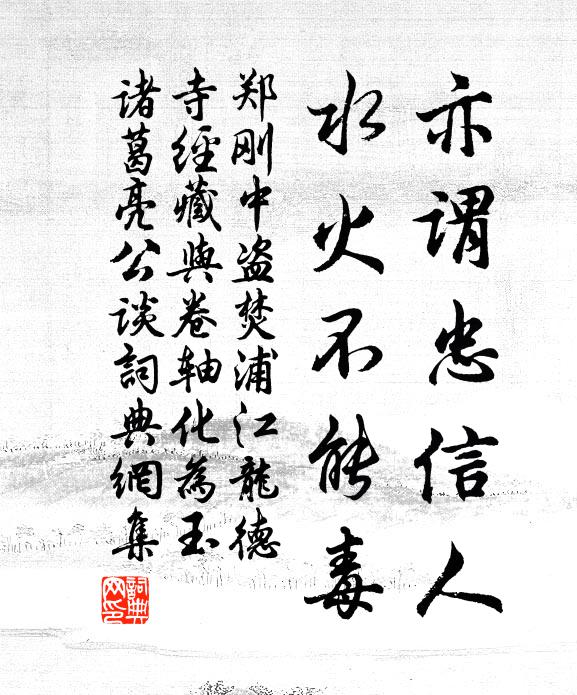 亦谓忠信人
水火不能毒
郑刚中盗焚浦江龍德
寺經藏與卷轴化為玉
诸葛亮公谈詞典網集
詞典
网印